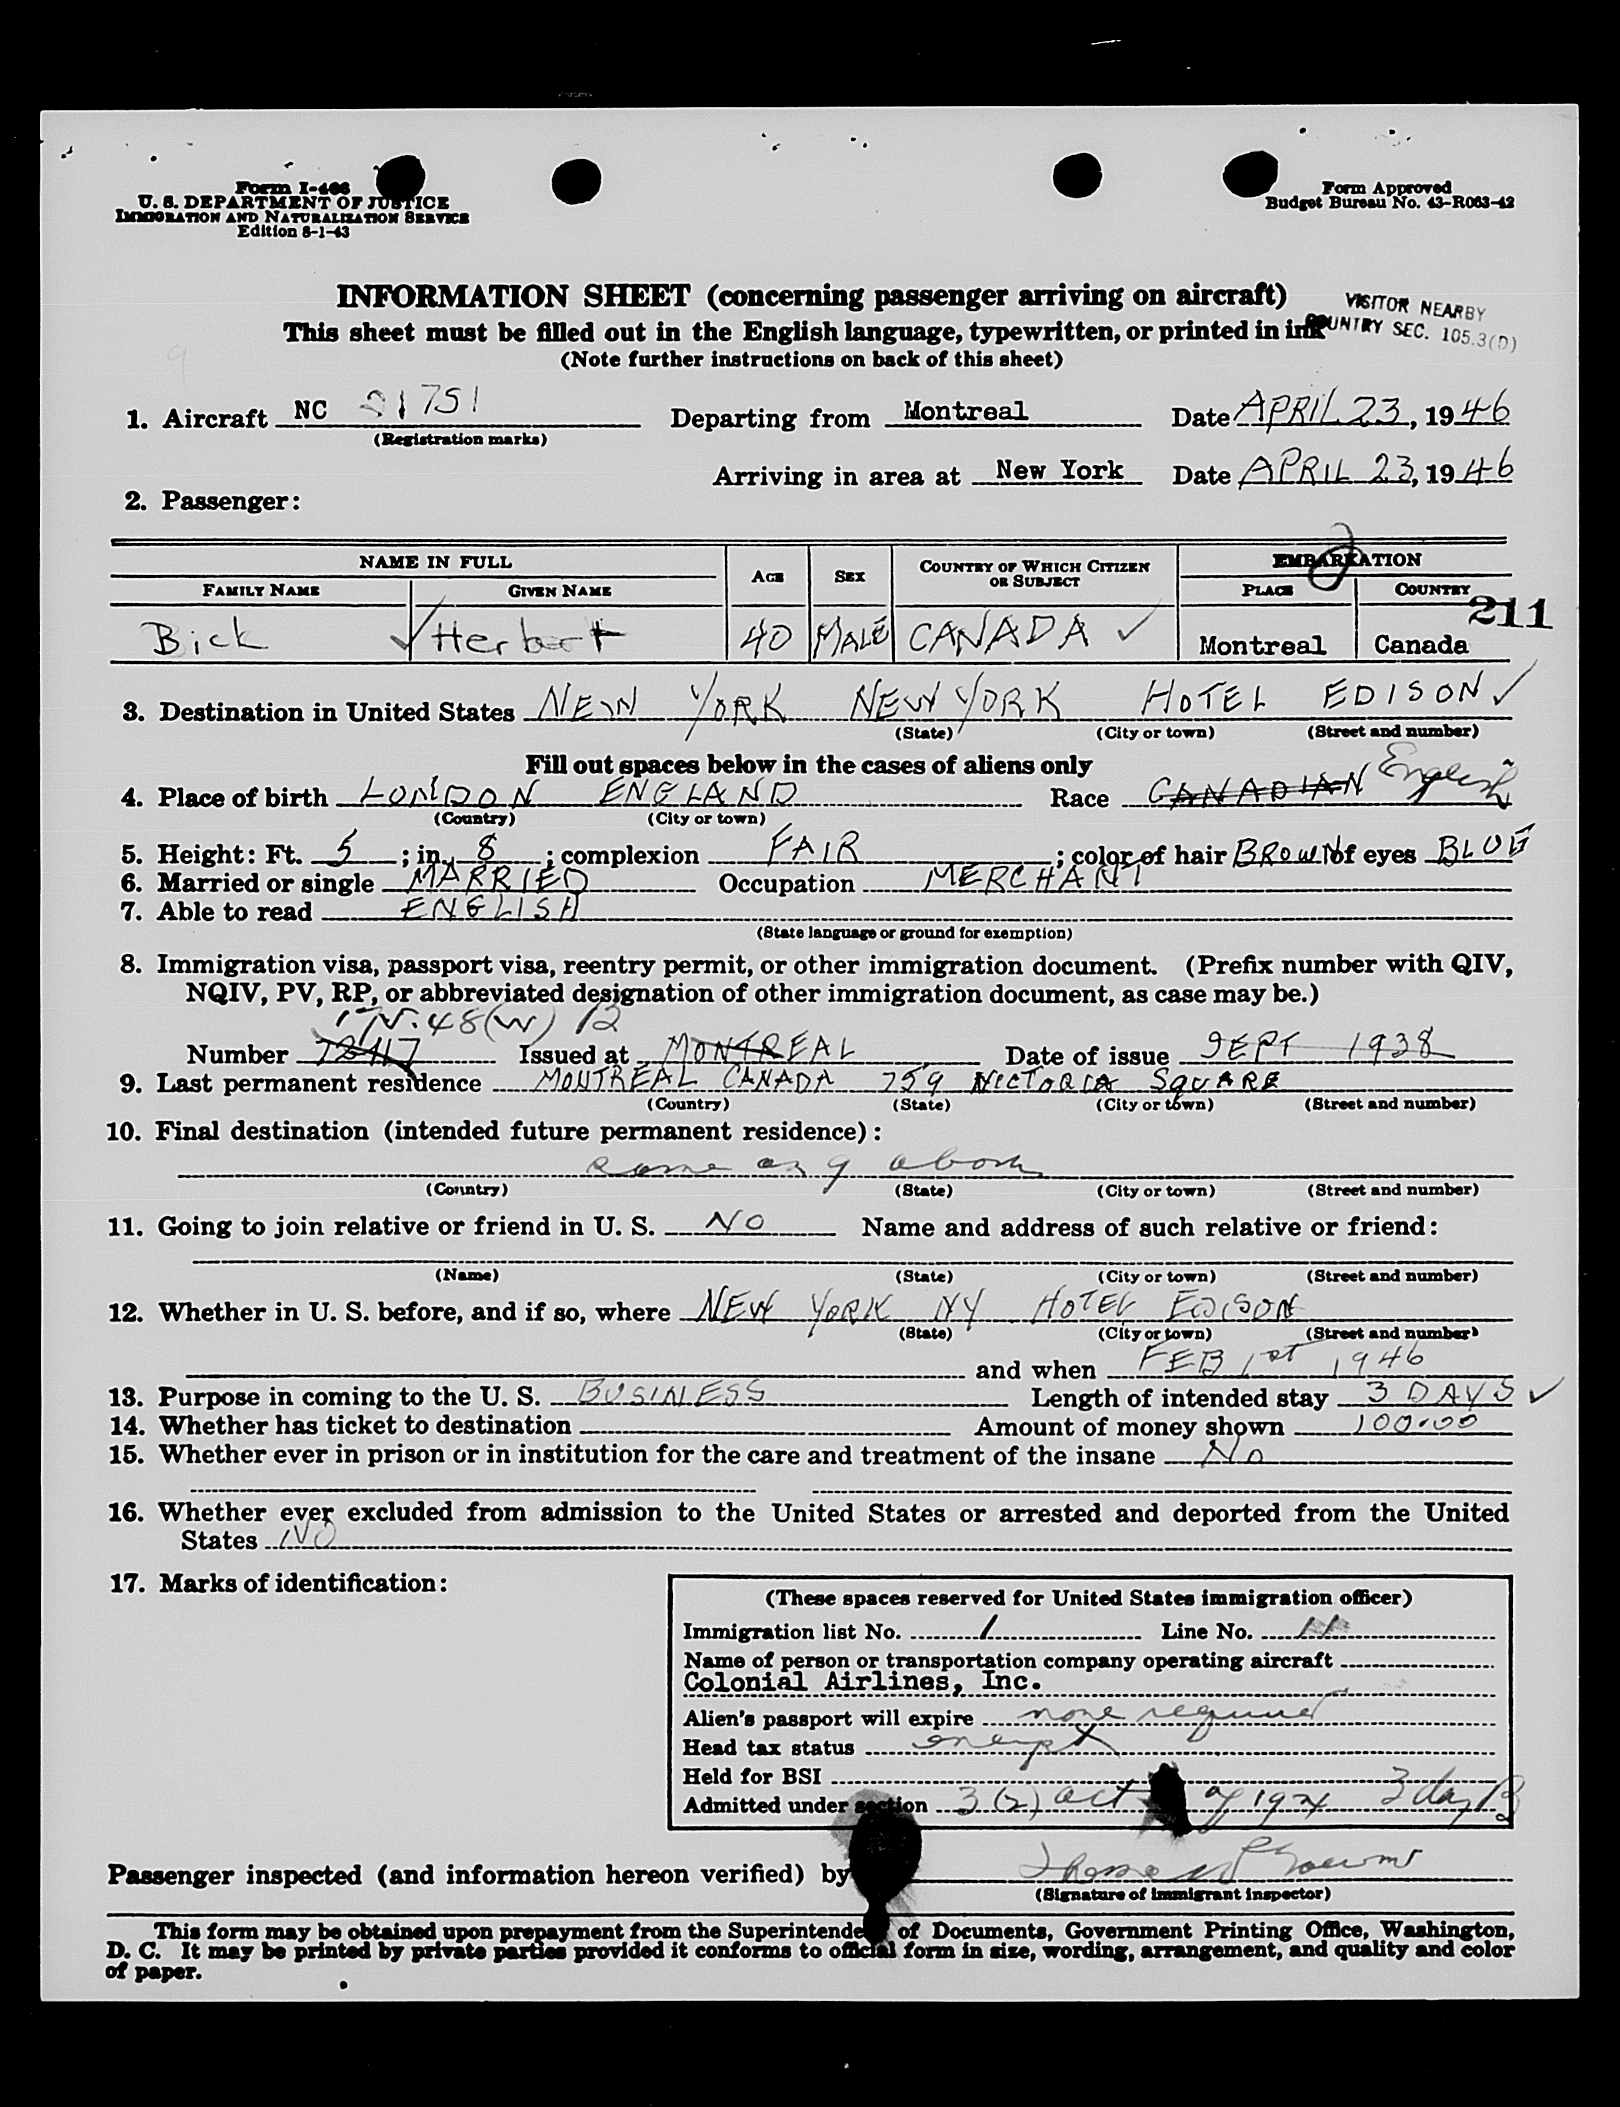 Form I-466
U. S. DEPARTMENT OF JUSTICE
IMMIGRATION AND NATURALIZATION SERVICE
Edition 8-1-43
Form Approved
Budget Bureau No. 43-R063-42
INFORMATION SHEET (concerning passenger arriving on aircraft)
This sheet must be filled out in the English language, typewritten, or printed in ink
(Note further instructions on back of this sheet)
VISITOR NEARBY
COUNTRY SEC. 105.3(D)
1. Aircraft NC 21751 Departing from Montreal Date APRIL 23, 1946
(Registration marks)
Arriving in area at New York Date APRIL 23, 1946
2. Passenger:
NAME IN FULL AGE SEX COUNTRY OF WHICH CITIZEN OR SUBJECT EMBARKATION
FAMILY NAME GIVEN NAME PLACE COUNTRY
211
Bick Herbert 40 MALE CANADA Montreal Canada
3. Destination in United States NEW YORK NEW YORK HOTEL EDISON
(State) (City or town) (Street and number)
Fill out spaces below in the cases of aliens only
4. Place of birth LONDON ENGLAND Race CANADIAN English
(Country) (City or town)
5. Height: Ft. 5; in. 8; complexion FAIR; color of hair BROWN of eyes BLUE
6. Married or single MARRIED Occupation MERCHANT
7. Able to read ENGLISH
(State language or ground for exemption)
8. Immigration visa, passport visa, reentry permit, or other immigration document. (Prefix number with QIV,
NQIV, PV, RP, or abbreviated designation of other immigration document, as case may be.)
48(W) 12
Number Issued at MONTREAL Date of issue SEPT 1938
9. Last permanent residence MONTREAL CANADA 759 VICTORIA SQUARE
(Country) (State) (City or town) (Street and number)
10. Final destination (intended future permanent residence):
same as 9 above
(Country) (State) (City or town) (Street and number)
11. Going to join relative or friend in U. S. NO Name and address of such relative or friend:
(Name) (State) (City or town) (Street and number)
12. Whether in U. S. before, and if so, where NEW YORK NY HOTEL EDISON
(State) (City or town) (Street and number)
and when FEB 1st 1946
13. Purpose in coming to the U. S. BUSINESS Length of intended stay 3 DAYS
14. Whether has ticket to destination Amount of money shown 100.00
15. Whether ever in prison or in institution for the care and treatment of the insane No
16. Whether ever excluded from admission to the United States or arrested and deported from the United
States NO
17. Marks of identification:
(These spaces reserved for United States immigration officer)
Immigration list No. 1 Line No. 11
Name of person or transportation company operating aircraft
Colonial Airlines, Inc.
Alien's passport will expire none required
Head tax status exempt
Held for BSI
Admitted under section 3 (2) act of 1924 3 days
Passenger inspected (and information hereon verified) by
(Signature of immigrant inspector)
This form may be obtained upon prepayment from the Superintendent of Documents, Government Printing Office, Washington,
D. C. It may be printed by private parties provided it conforms to official form in size, wording, arrangement, and quality and color
of paper.